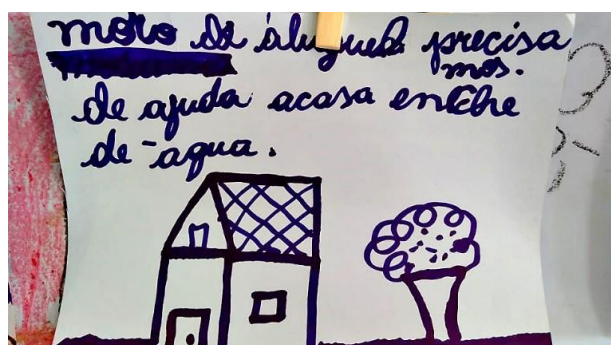 moro de alugueu precisa
mos.
de ajuda acasa enche
de-agua.